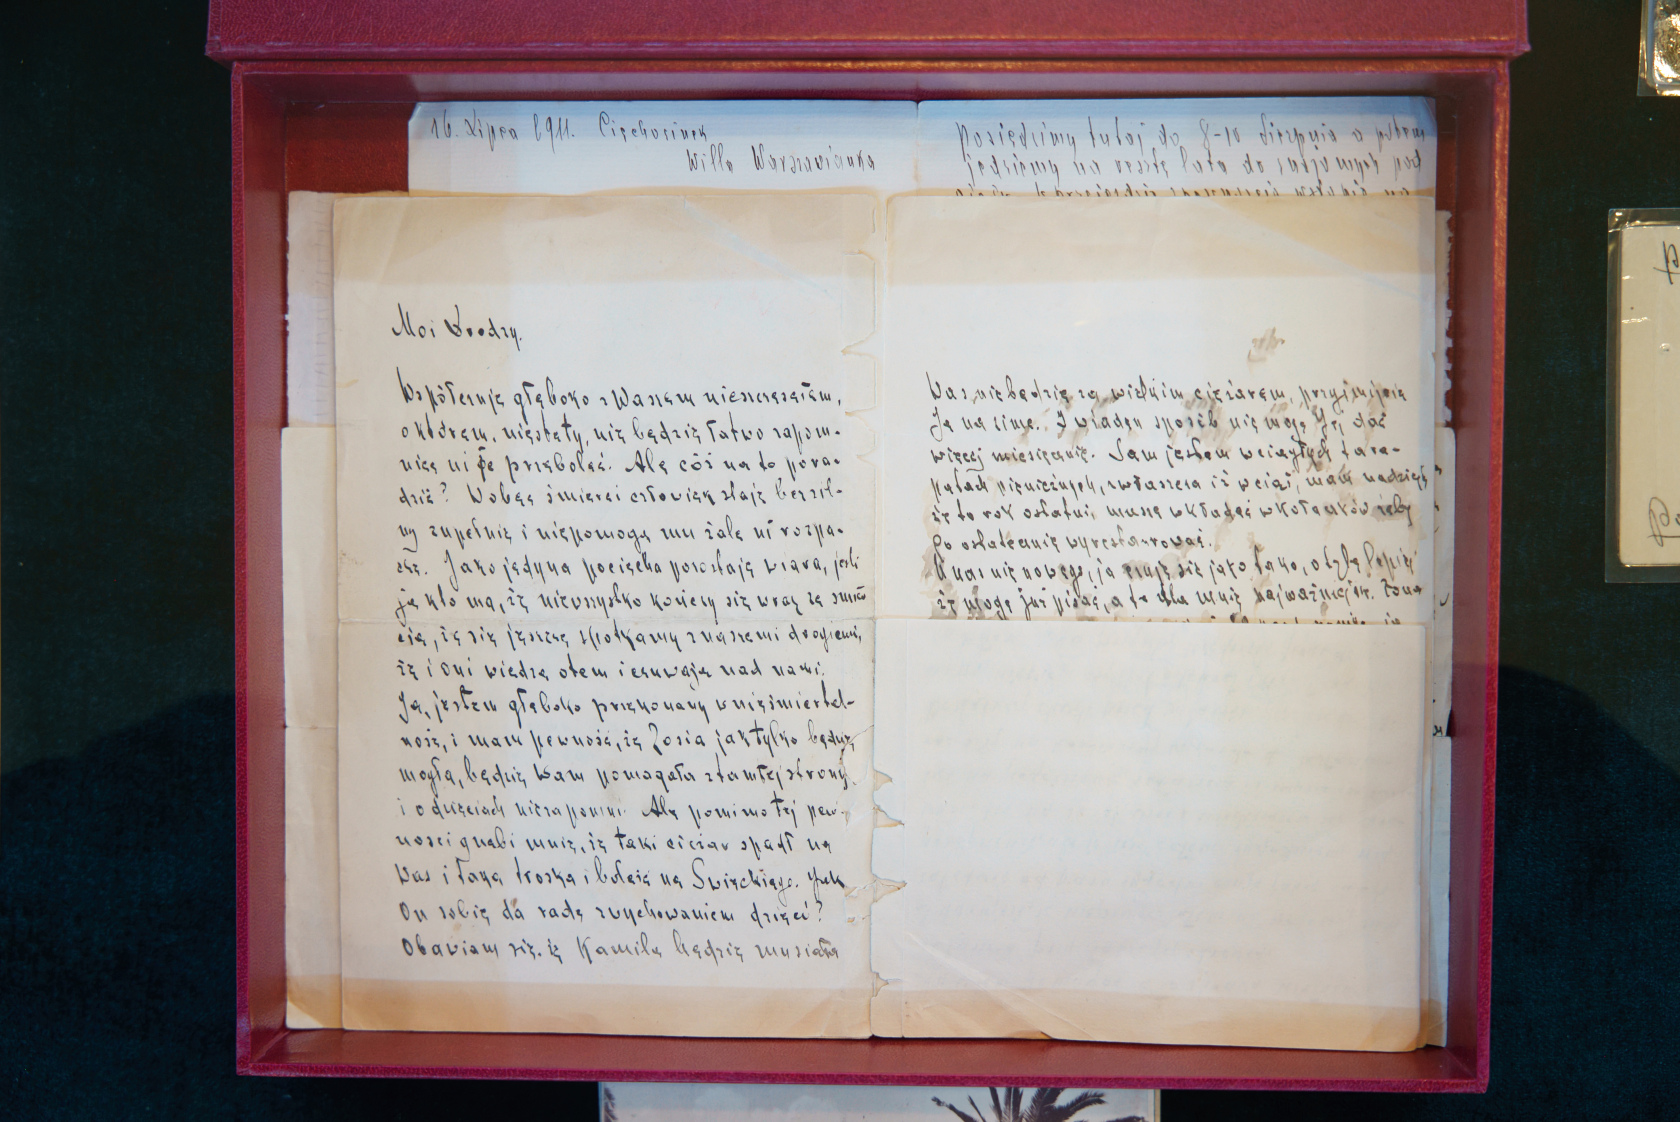 16. Lipca 1911. Ciechocinek
Willa Warszawianka
posiedzimy tutaj do 8-10 Sierpnia a potem
jedziemy na resztę lata do
Moi Drodzy.
Współczuję głęboko z Waszem nieszczęściem,
o którem, niestety, nie będzie łatwo zapom-
nieć ni je przeboleć. Ale cóż na to pora-
dzić? Wobec śmierci człowiek staje bezsil-
ny zupełnie i niepomogą mu żale ni rozpa-
cze. Jako jedyna pociecha pozostaje wiara, jeśli
ją kto ma, iż niewszystko kończy się wraz ze śmier
cią, iż się jeszcze spotkamy z naszemi drogiemi,
iż i oni wiedzą otem i czuwają nad nami.
Ja, jestem głęboko przekonany w nieśmiertel-
ność, i mam pewność, iż Zosia jak tylko będzie
mogła, będzie Wam pomagała z tamtej strony
i o dzieciach niezapomni. Ale pomimo tej pew-
ności gnębi mnie, iż taki ciężar spadł na
Was i taka troska i boleść na Święckiego. Jak
On sobie da radę z wychowaniem dzieci?
Obawiam się, iż Kamila będzie musiała
Was nie będzie za wielkim ciężarem, przyjmijcie
Ją na zimę. I wiaden sposób nie mogę Jej dać
więcej miesięcznie. Sam jestem w ciągłych tara-
patach pieniężnych, zwłaszcza iż wciąż, mam nadzieję
iż to rok ostatni, muszę wkładać w Kołtaków żeby
go ostatecznie wyrestaurować.
U nas nic nowego, ja czuję się jako tako, o tyle lepiej
iż mogę już pisać, a to dla mnie najważniejsze.